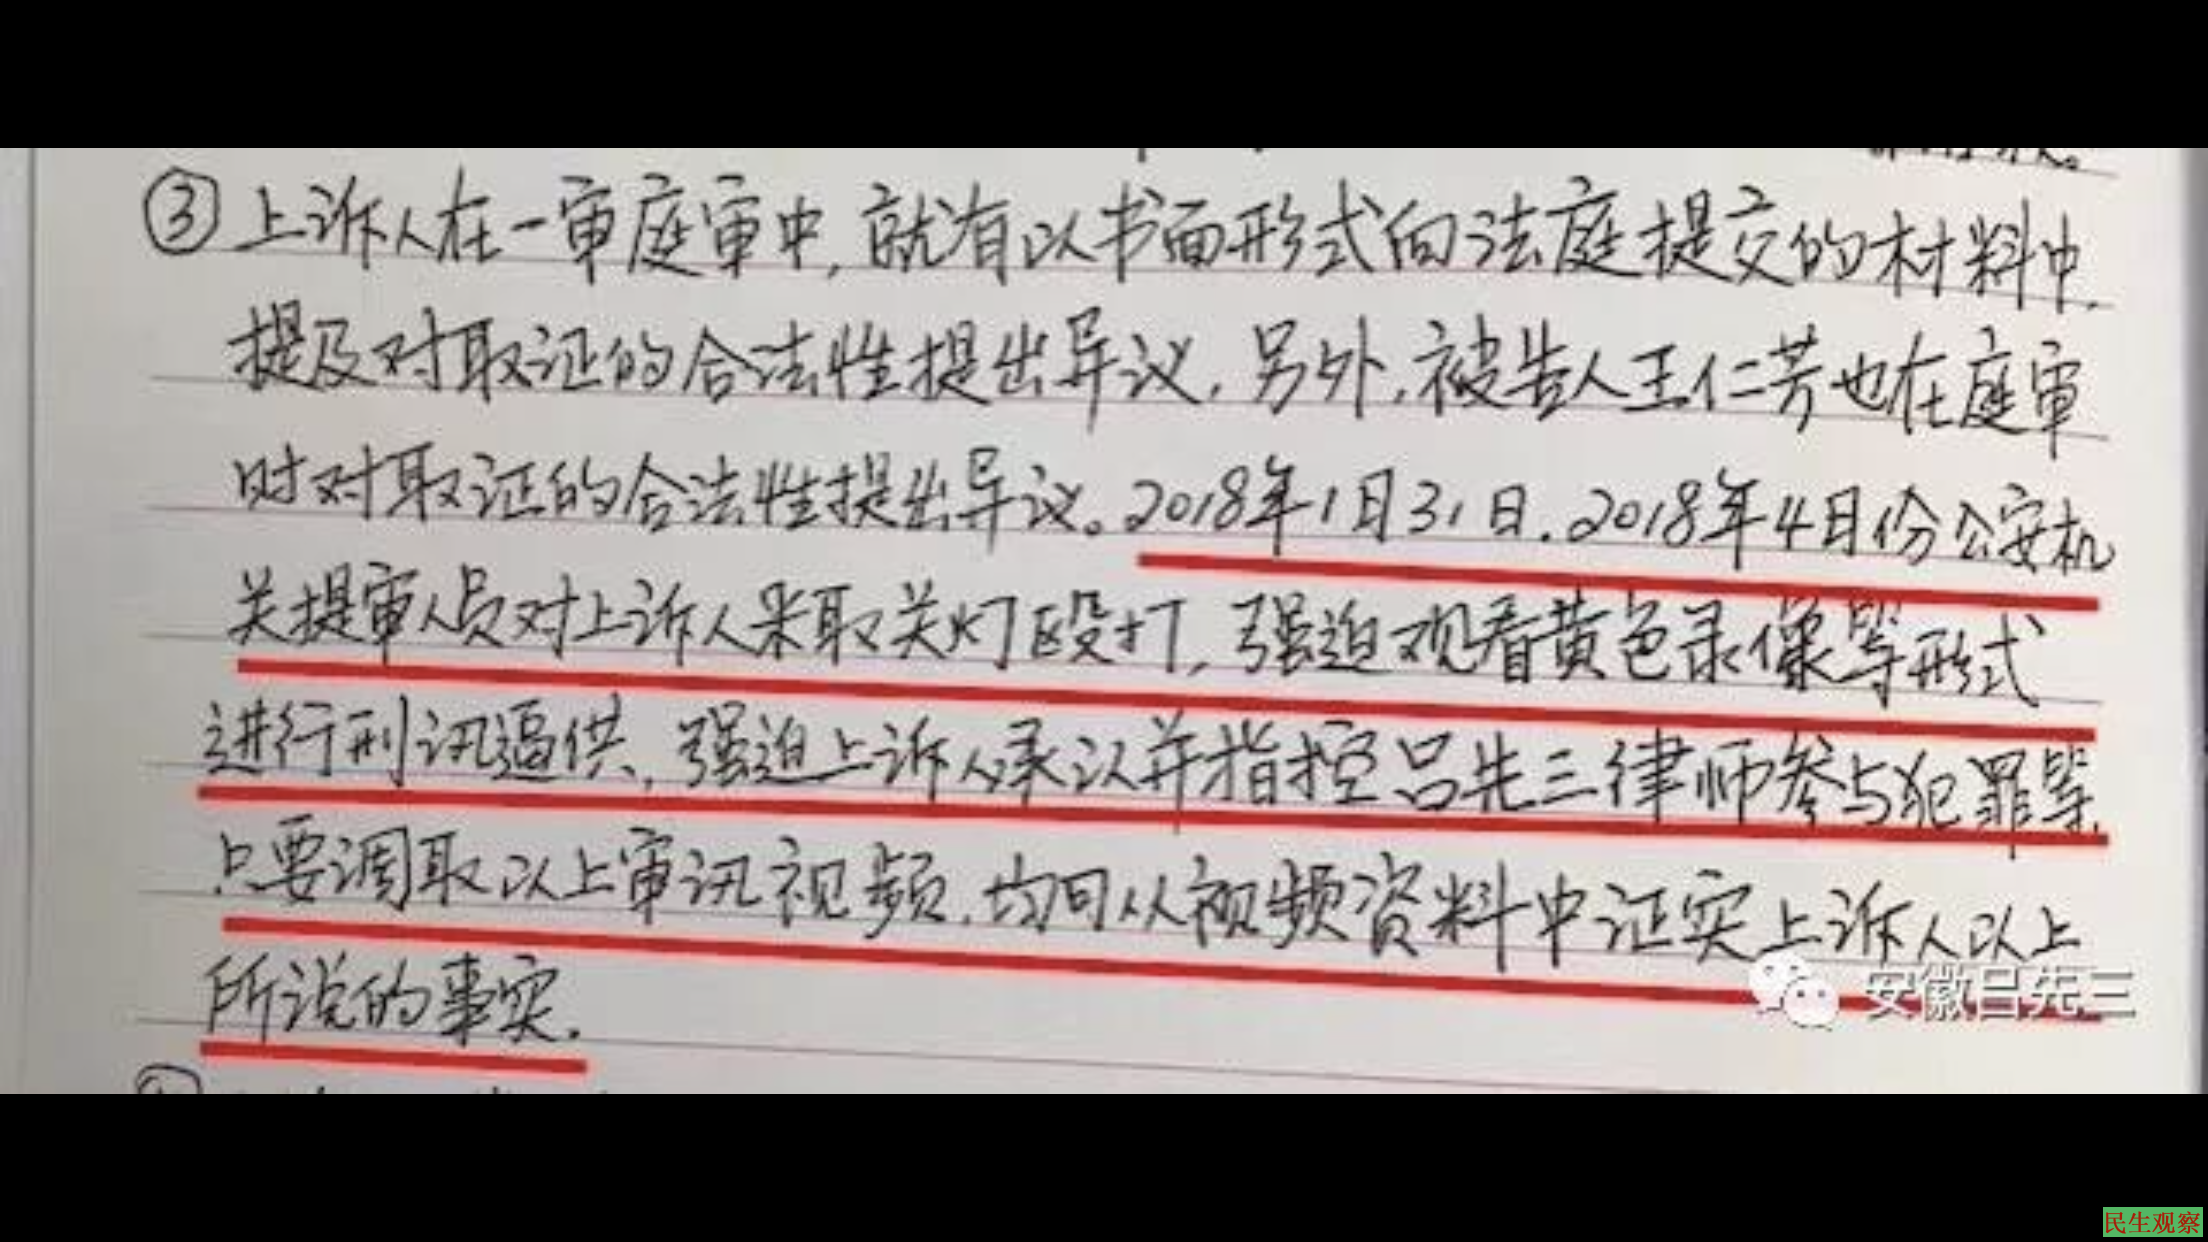 ③上诉人在一审庭审中,就有以书面形式向法庭提交的材料中,
提及对取证的合法性提出异议,另外,被告人王仁芳也在庭审
时对取证的合法性提出异议。2018年1月31日.2018年4月份公安机
关提审人员对上诉人采取关灯殴打,强迫观看黄色录像等形式
进行刑讯逼供,强迫上诉人承认并指控吕先三律师参与犯罪等,
只要调取以上审讯视频,均可从视频资料中证实上诉人以上
所说的事实.
安徽吕先三
民生观察